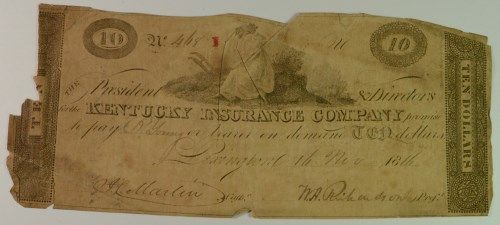 10 No. 468 10
THE President & Directors
for the KENTUCKY INSURANCE COMPANY, promise
to pay or bearer on demand TEN dollars
Lexington 16 Nov 1816
Cash.r W.A. Richardson Pres.t
TEN DOLLARS
TE